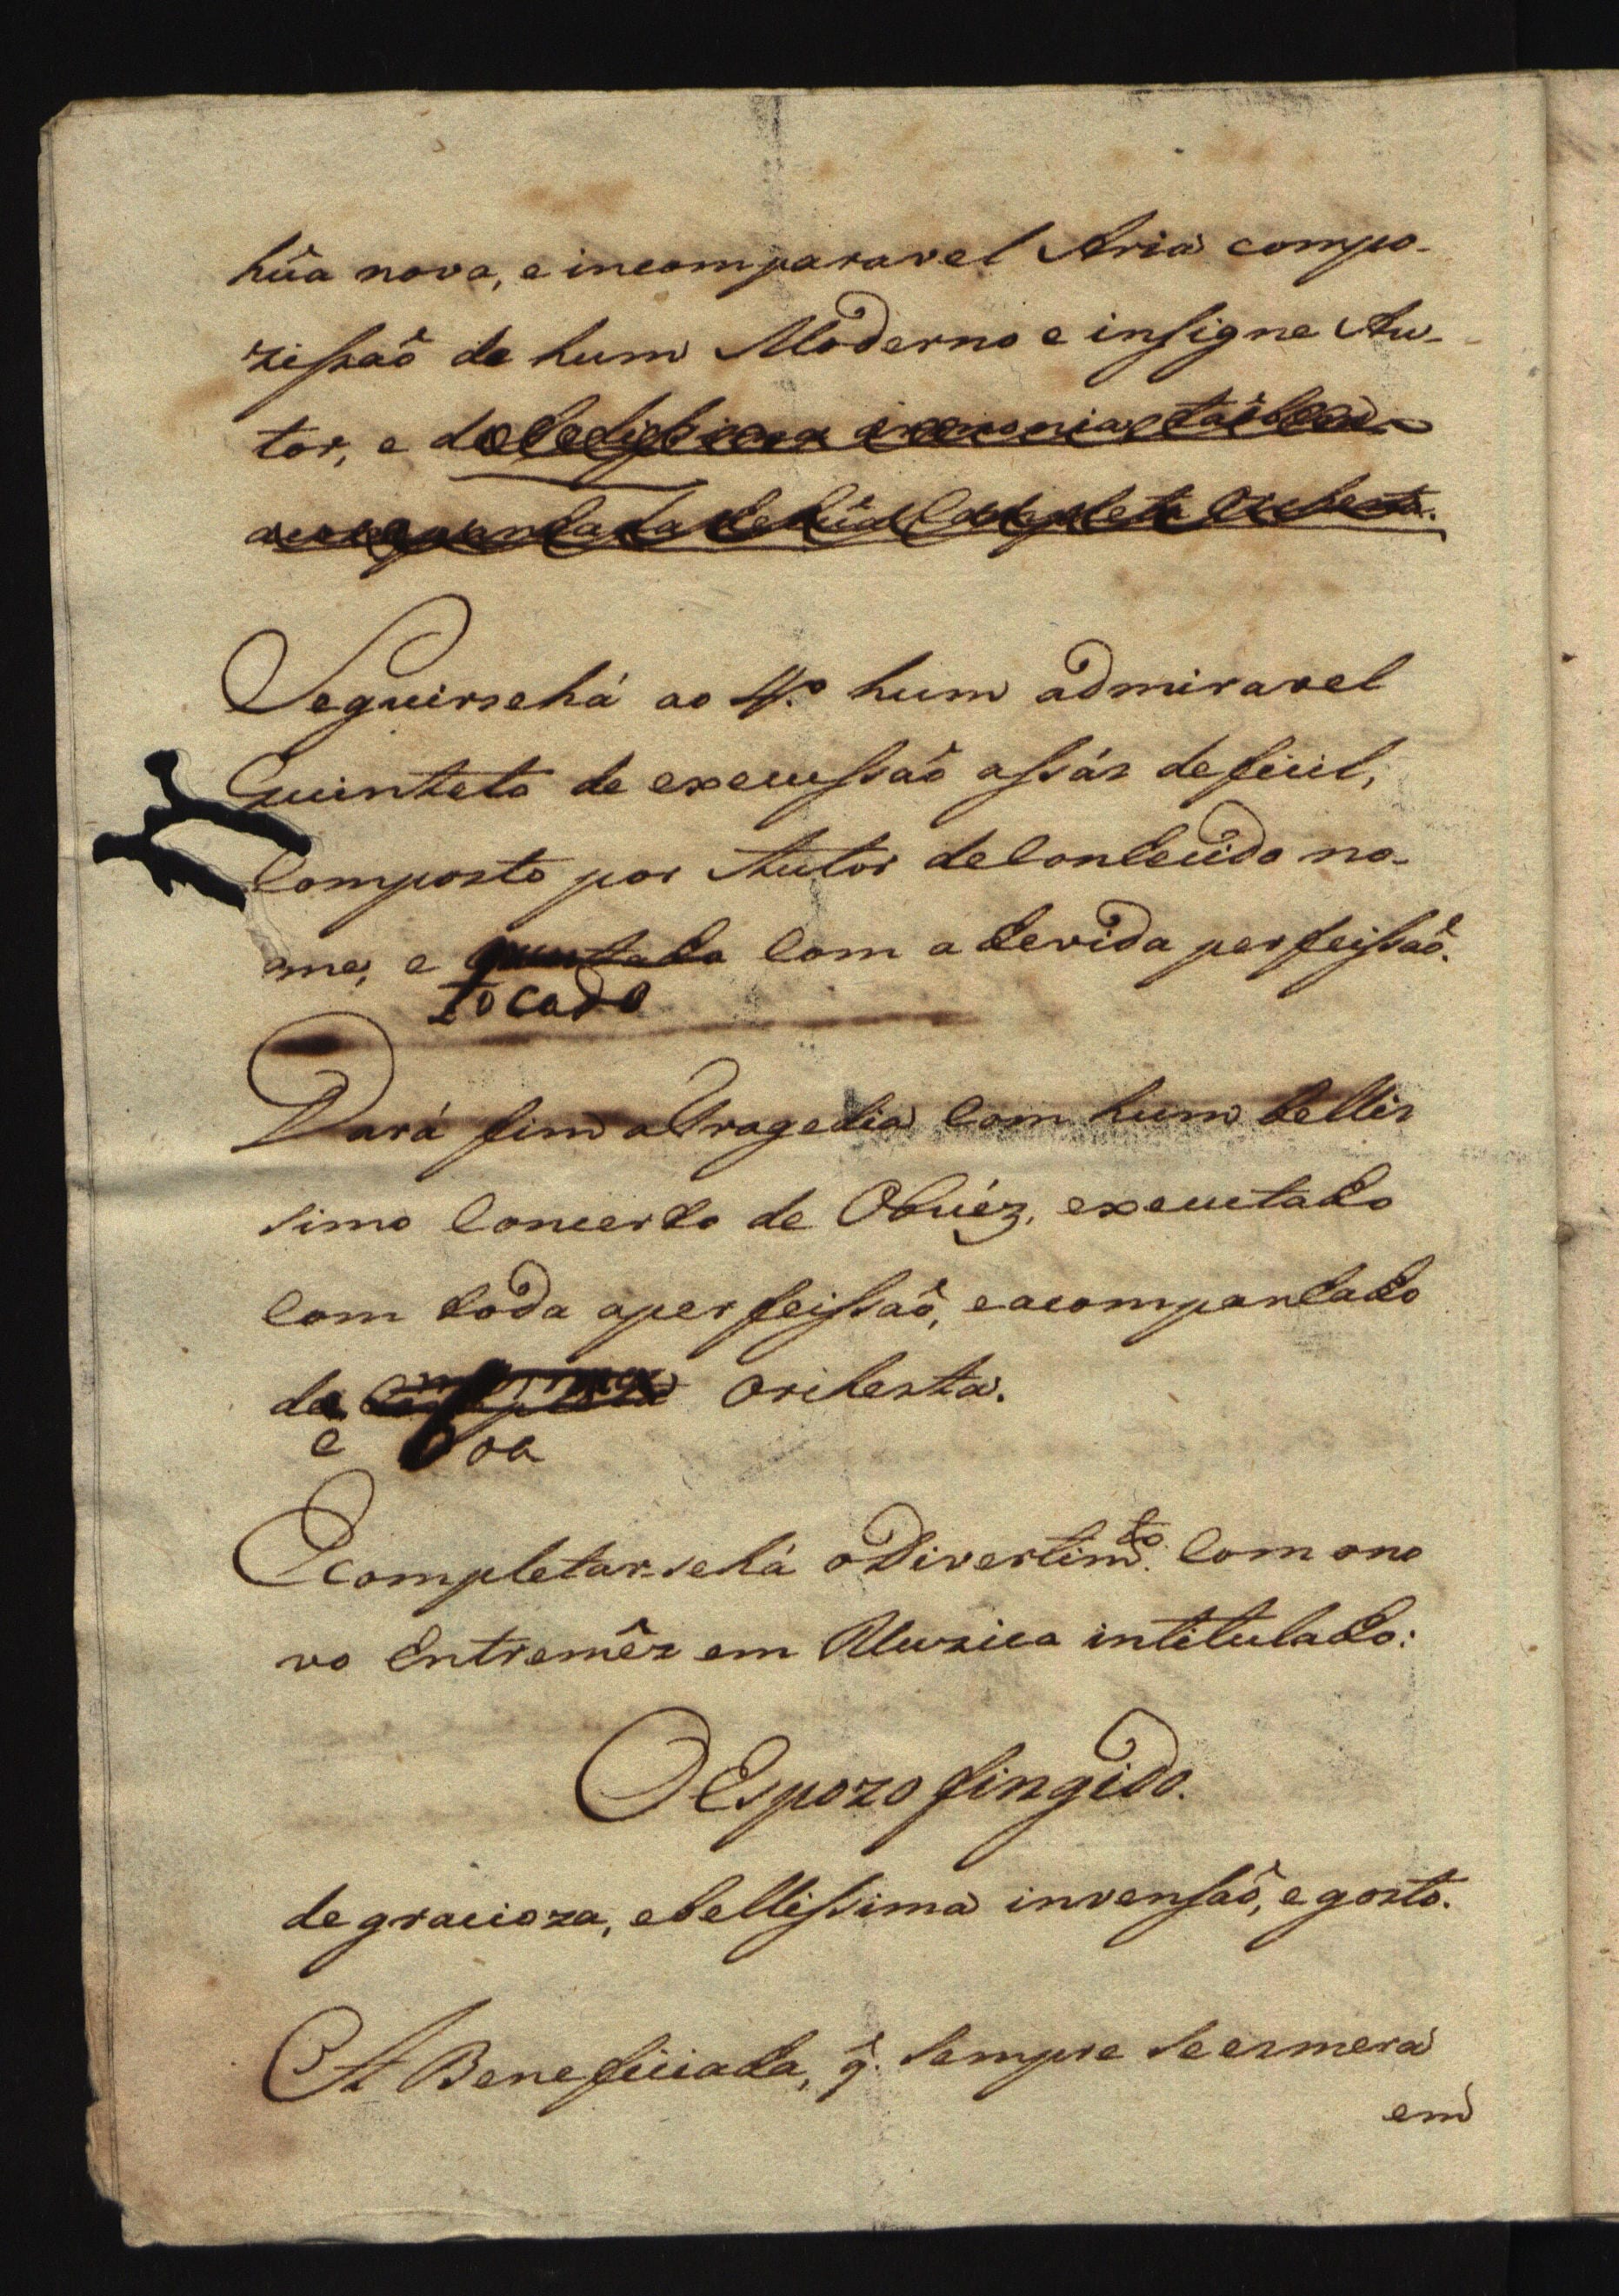 hũa nova, e incomparavel Aria compo-
zissaõ de hum Moderno e insigne Au-
tor, e de
completa Orchesta.
Seguirsehá ao 4.º hum admiravel
Quinteto de execussaõ assáz deficil,
Composto por Autor de Conhecido no-
me, e Com a devida perfeissaõ.
tocado
Dará fim a Tragedia Com hum bellis
simo Concerto de Obuéz, executado
Com toda a perfeissaõ, e acompanhado
de Orchesta.
e boa
Completar-sehá o Divertimto. Com o no
vo Entremêz em Muzica intitulado:
O Espozo fingido.
de gracioza, e bellissima invensaõ, e gosto.
A Beneficiada, q̃. Sempre se esmera
em